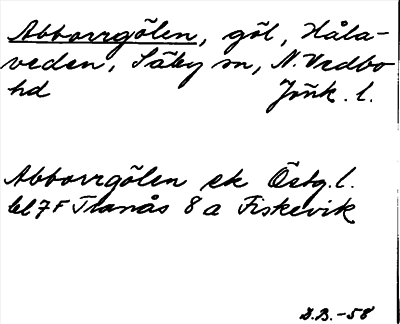 Abborrgölen, göl, Håla-
veden, Säby sn, N. Vedbo
hd Jönk. l.
Abborrgölen ek Östg. l.
bl 7 F Tranås 8 a Fiskevik
D.B. -58